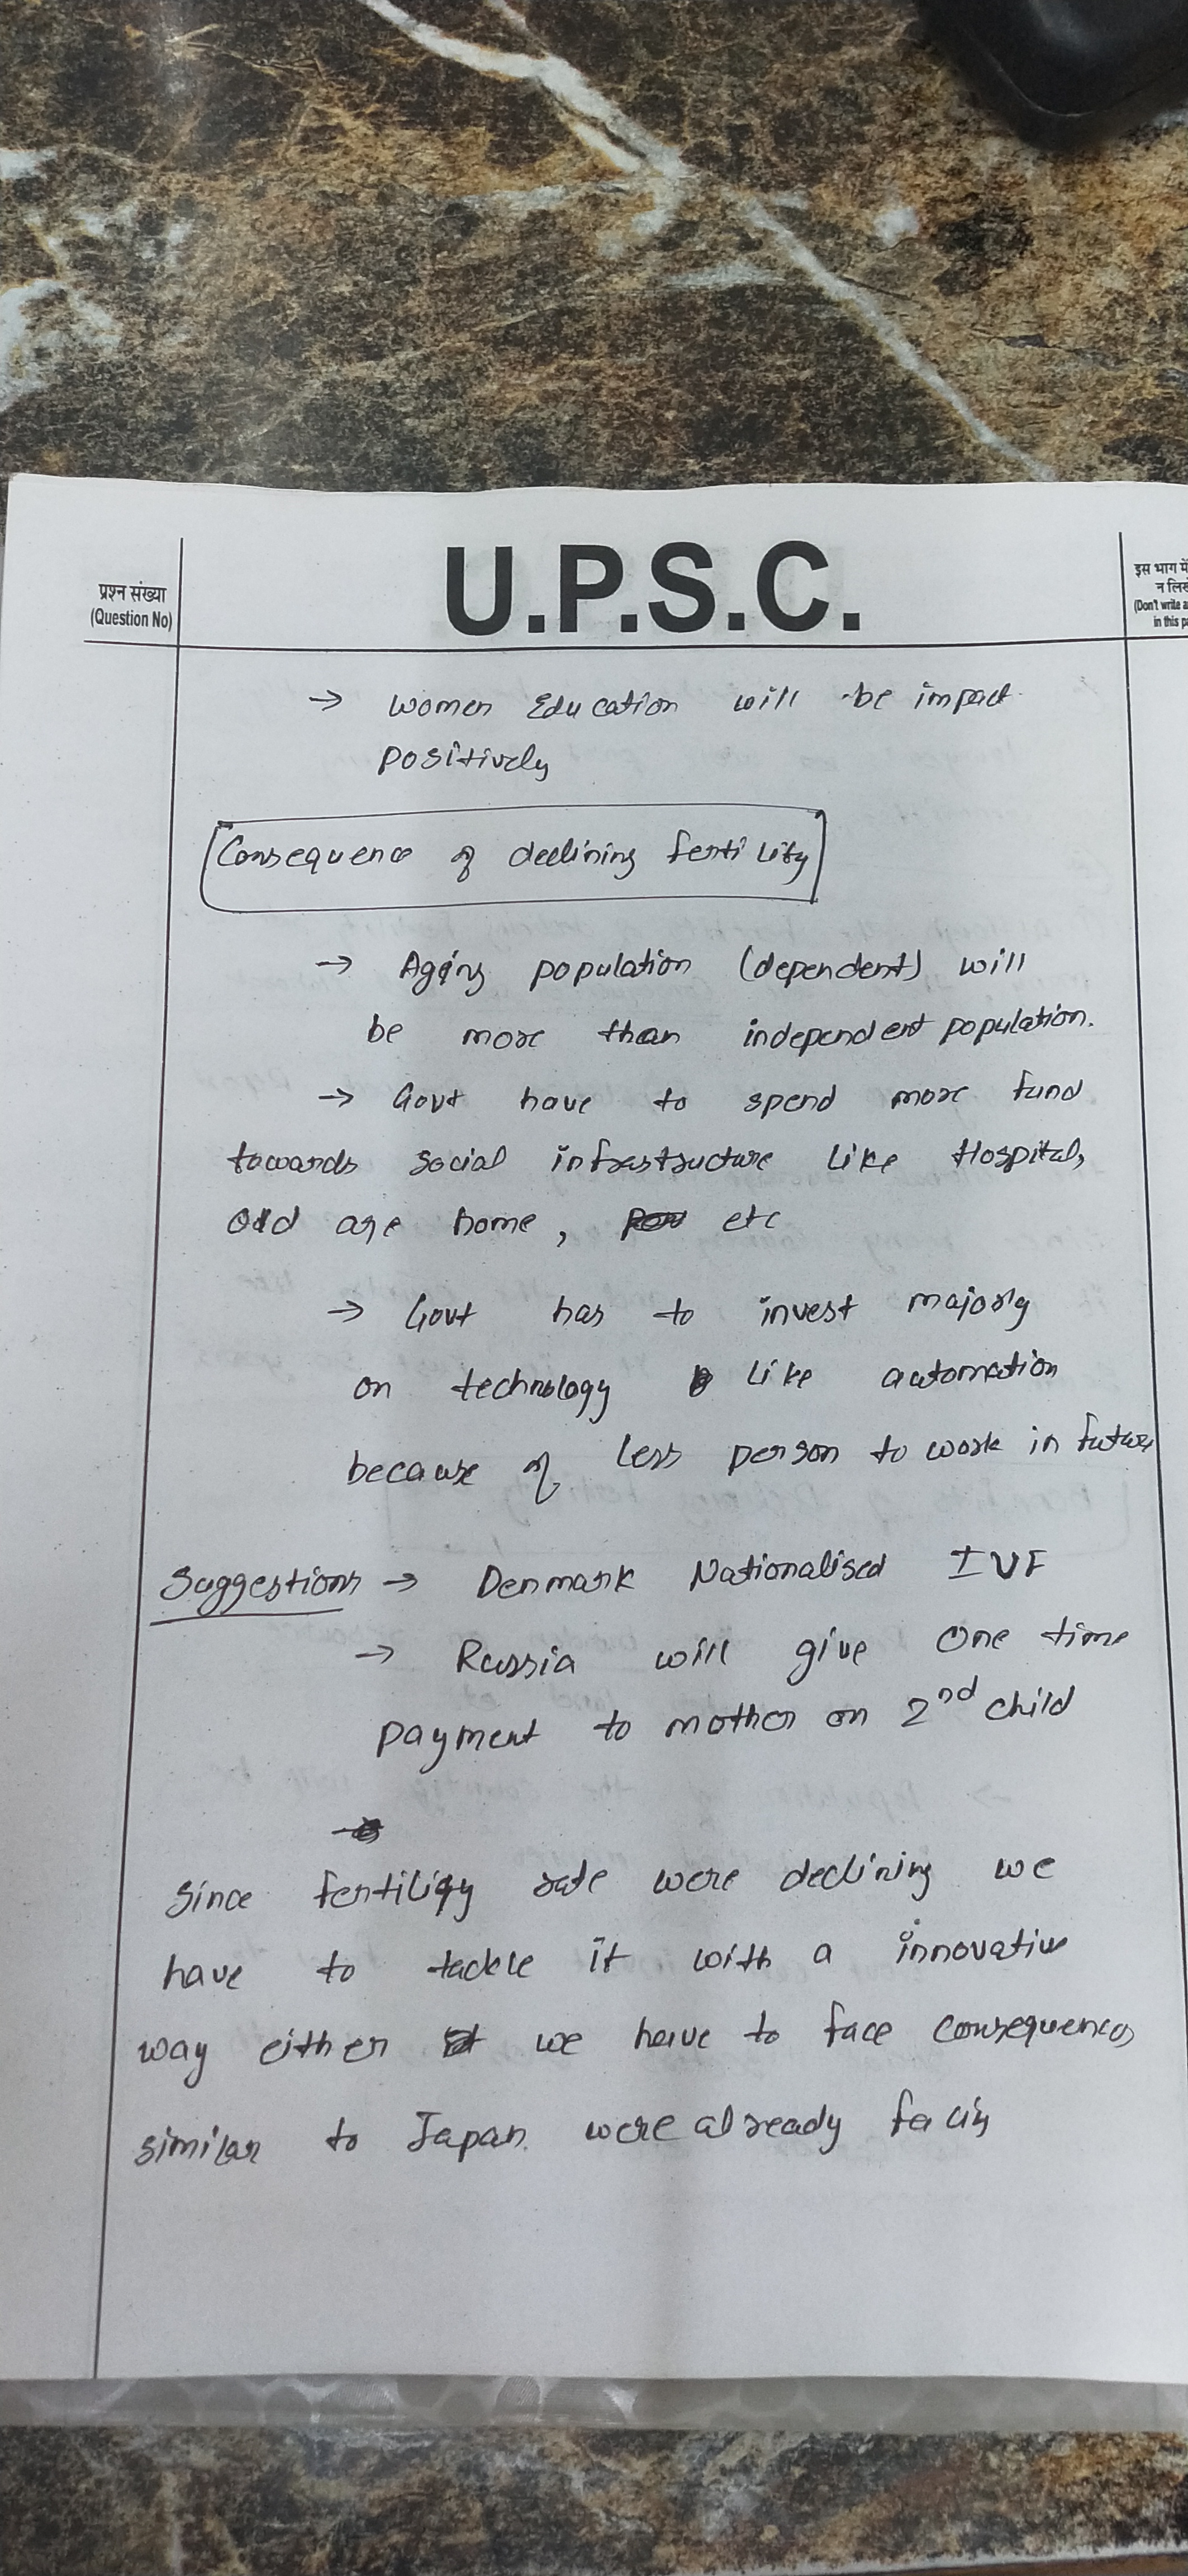 U.P.S.C.
प्रश्न संख्या
(Question No)
इस भाग में
(Don't write
in this
→ women Education will be impact
positively
Consequence of declining fertility
→ Aging population (dependent) will
be more than independent population.
→ Govt have to spend more fund
towards social infrastructure like Hospital,
old age home, etc
→ Govt has to invest majorly
on technology like automation
because of less person to work in future
Suggestions → Denmark Nationalised IVF
→ Russia will give one time
payment to mother on 2nd child
since fertility rate were declining we
have to tackle it with a innovative
way either we have to face consequences
similar to Japan were already facing